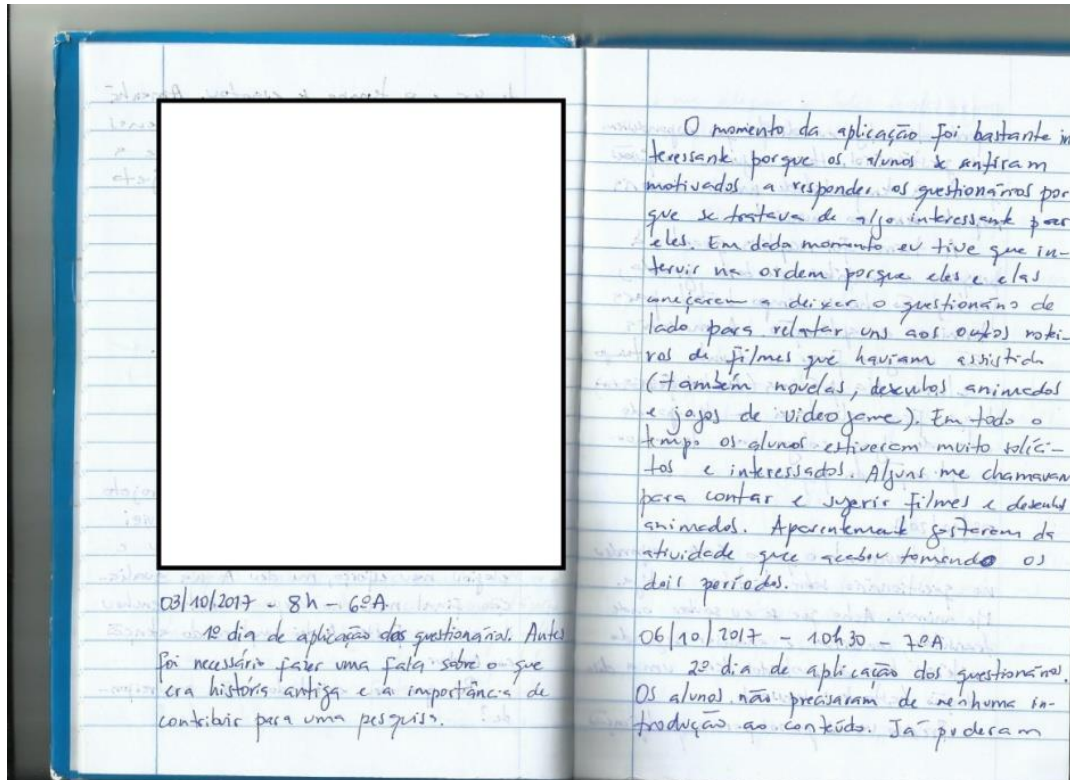 03/10/2017 - 8h - 6ºA.
1º dia de aplicação dos questionários. Antes
foi necessário fazer uma fala sobre o que
era história antiga e a importância de
contribuir para uma pesquisa.
O momento da aplicação foi bastante in
teressante porque os alunos se sentiram
motivados a responder os questionários por
que se tratava de algo interessante para
eles. Em dado momento eu tive que in-
tervir na ordem porque eles e elas
começaram a deixar o questionário de
lado para relatar uns aos outros rotei-
ros de filmes que haviam assistido
(também novelas, desenhos animados
e jogos de videogame). Em todo o
tempo os alunos estiveram muito solíci-
tos e interessados. Alguns me chamavam
para contar e sugerir filmes e desenhos
animados. Aparentemente gostaram da
atividade que acabou tomando os
dois períodos.
06/10/2017 - 10h30 - 7ºA
2º dia de aplicação dos questionários.
Os alunos não precisaram de nenhuma in-
trodução ao conteúdo. Já puderam